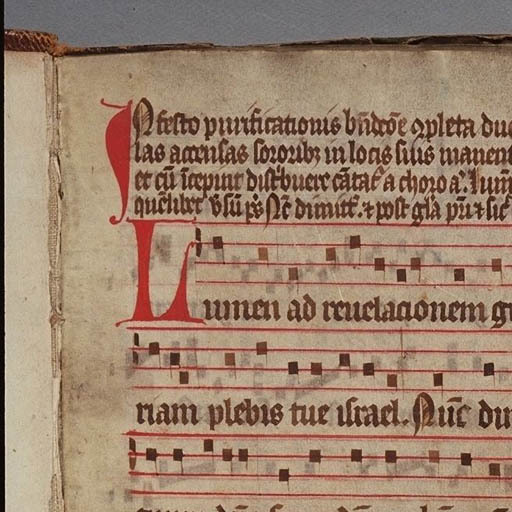 In festo purificationis bñdcõe ꝯpleta duc
las accensas sororibꝫ in locis suis manent
et cũ ĩcepiut dist̃buere cãtat᷑ a choro añ. lum̃
quélibet v̉sũ ps̃ Nc̃ dimitt̃. ⁊ post gl̃a pr̃i ⁊ sic̃
Lumen ad reuelacionem g
riam plebis tue israel. Nũc di